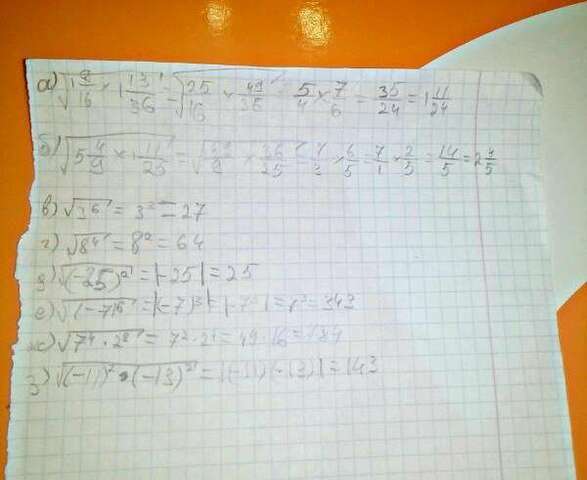 а) √1 9/16 × 1 13/36 = √25/16 × 49/36 = 5/4 × 7/6 = 35/24 = 1 11/24
б) √5 4/9 × 1 11/25 = √49/9 × 36/25 = 7/3 × 6/5 = 7/1 × 2/5 = 14/5 = 2 4/5
в) √3⁶ = 3³ = 27
г) √8⁴ = 8² = 64
д) √(-25)² = |-25| = 25
е) √(-7)⁶ = |(-7)³| = |-7³| = 7³ = 343
ж) √7⁴ · 2⁸ = 7² · 2⁴ = 49 · 16 = 784
з) √(-11)² · (-13)² = |(-11)(-13)| = 143